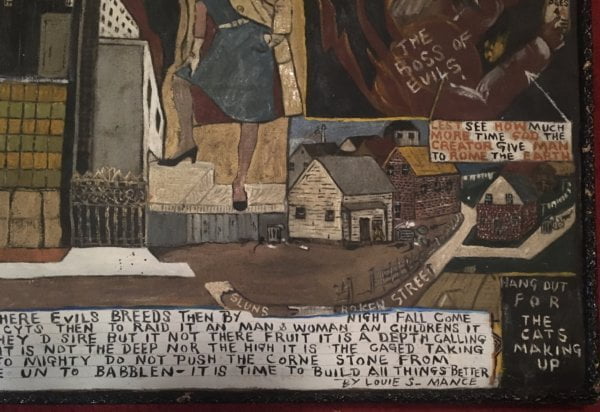 THE
BOSS OF
EVILS!
LEST SEE HOW MUCH
MORE TIME GOD THE
CREATOR GIVE MAN
TO ROME THE EARTH
SLUNS BROKEN STREET
HANG OUT
FOR
THE
CATS
MAKING
UP
HERE EVILS BREEDS THEN BY NIGHT FALL COME
CYTS THEN TO RAID IT AN MAN & WOMAN AN CHILDRENS IT
HEY D SIRE BUT IT NOT THERE FRUIT IT IS A DEPTH CALLING
IT IS NOT THE DEEP NOR THE HIGH IT IS THE CAGED TAKING
TO MIGHTY DO NOT PUSH THE CORNE STONE FROM
E UN TO BABBLEN - IT IS TIME TO BUILD ALL THINGS BETTER
BY LOUIE S- MANCE